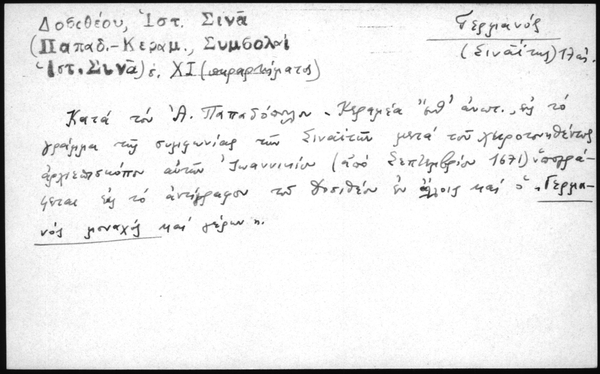 Δοσιθέου, Ἱστ. Σινᾶ
(Παπαδ.-Κεραμ., Συμβολαὶ
Ἱστ. Σινᾶ) σ. ΧΙ (παραρτήματος)
Γερμανός
(Σιναΐτης) 17 αἰ.
Κατὰ τὸν Ἀ. Παπαδόπουλον - Κεραμέα ἔνθ' ἀνωτ., εἰς τὸ
γράμμα τῆς συμφωνίας τῶν Σιναϊτῶν μετὰ τοῦ χειροτονηθέντος
ἀρχιεπισκόπου αὐτῶν Ἰωαννικίου (ἀπὸ Σεπτεμβρίου 1671) ὑπογρά-
φεται εἰς τὸ ἀντίγραφον τοῦ Δοσιθέου ἐν ἄλλοις καὶ ὁ "Γερμα-
νὸς μοναχὸς καὶ γέρων".